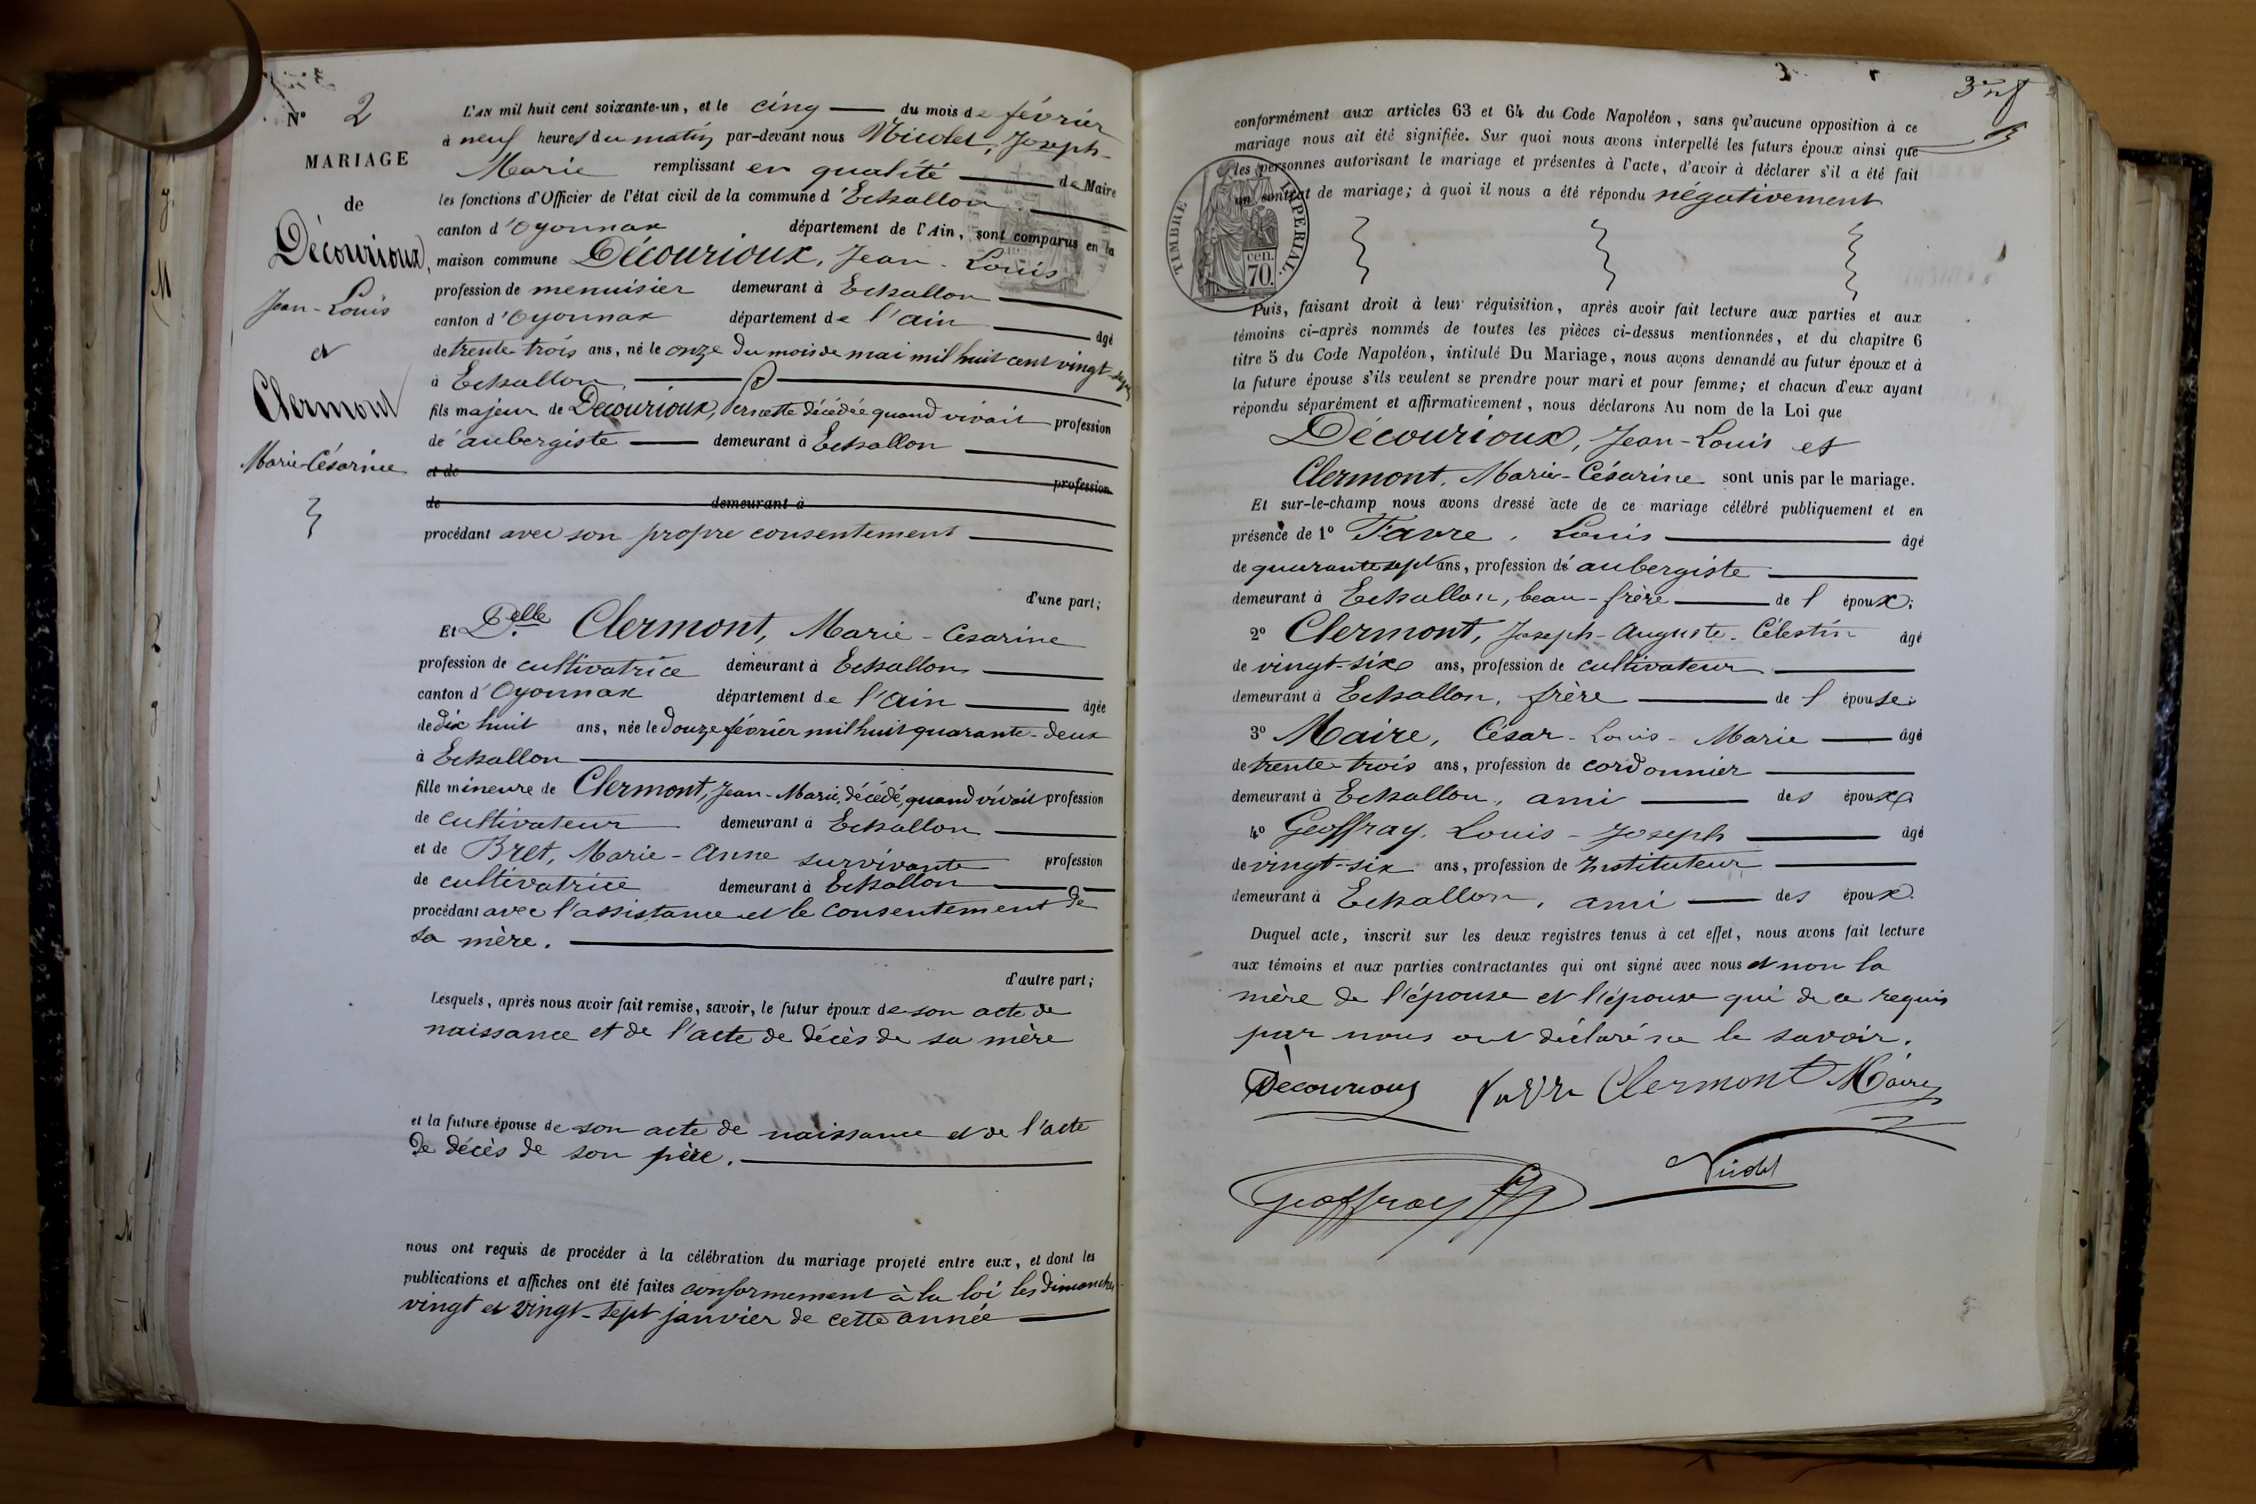 N° 2
MARIAGE
de
Décourioux,
Jean-Louis
et
Clermont
Marie-Césarine
L'AN mil huit cent soixante-un, et le cinq du mois de février
à neuf heures du matin par-devant nous Nicolet, Joseph-
Marie remplissant en qualité de Maire
les fonctions d'Officier de l'état civil de la commune d'Echallon
canton d'Oyonnax département de l'Ain, sont comparus en la
maison commune Décourioux, Jean-Louis
profession de menuisier demeurant à Echallon
canton d'Oyonnax département de l'ain âgé
de trente-trois ans, né le onze du mois de mai mil huit cent vingt-sept
à Echallon
fils majeur de Decourioux, décédée quand vivait profession
de aubergiste demeurant à Echallon
et de profession
de demeurant à
procédant avec son propre consentement
d'une part;
Et Delle Clermont, Marie-Césarine
profession de cultivatrice demeurant à Echallon
canton d'Oyonnax département de l'ain âgée
de dix huit ans, née le douze février mil huit quarante-deux
à Echallon
fille mineure de Clermont, Jean-Marie, décédé, quand vivait profession
de cultivateur demeurant à Echallon
et de Bret, Marie-Anne survivante profession
de cultivatrice demeurant à Echallon
procédant avec l'assistance et le consentement de
sa mère.
d'autre part;
Lesquels, après nous avoir fait remise, savoir, le futur époux de son acte de
naissance et de l'acte de décès de sa mère
et la future épouse de son acte de naissance et de l'acte
de décès de son père.
nous ont requis de procéder à la célébration du mariage projeté entre eux, et dont les
publications et affiches ont été faites conformement à la loi les dimanches
vingt et vingt-sept janvier de cette année
conformément aux articles 63 et 64 du Code Napoléon, sans qu'aucune opposition à ce
mariage nous ait été signifiée. Sur quoi nous avons interpellé les futurs époux ainsi que
les personnes autorisant le mariage et présentes à l'acte, d'avoir à déclarer s'il a été fait
un contrat de mariage; à quoi il nous a été répondu négativement
TIMBRE IMPERIAL.
cen.
70.
Puis, faisant droit à leur réquisition, après avoir fait lecture aux parties et aux
témoins ci-après nommés de toutes les pièces ci-dessus mentionnées, et du chapitre 6
titre 5 du Code Napoléon, intitulé Du Mariage, nous avons demandé au futur époux et à
la future épouse s'ils veulent se prendre pour mari et pour femme; et chacun d'eux ayant
répondu séparément et affirmativement, nous déclarons Au nom de la Loi que
Décourioux, Jean-Louis et
Clermont, Marie-Césarine sont unis par le mariage.
Et sur-le-champ nous avons dressé acte de ce mariage célébré publiquement et en
présence de 1° Favre, Louis âgé
de quarante sept ans, profession d'aubergiste
demeurant à Echallon, beau-frère de l'époux;
2° Clermont, Joseph-Auguste-Célestin âgé
de vingt-six ans, profession de cultivateur
demeurant à Echallon, frère de l'épouse;
3° Maire, César-Louis-Marie âgé
de trente-trois ans, profession de cordonnier
demeurant à Echallon, ami des époux
4° Geoffray, Louis-Joseph âgé
de vingt-six ans, profession de Instituteur
demeurant à Echallon, ami des époux.
Duquel acte, inscrit sur les deux registres tenus à cet effet, nous avons fait lecture
aux témoins et aux parties contractantes qui ont signé avec nous et non la
mère de l'épouse et l'épouse qui de ce requis
par nous ont déclaré ne le savoir.
Décourioux Favre Clermont Maire
Geoffray Nicolet